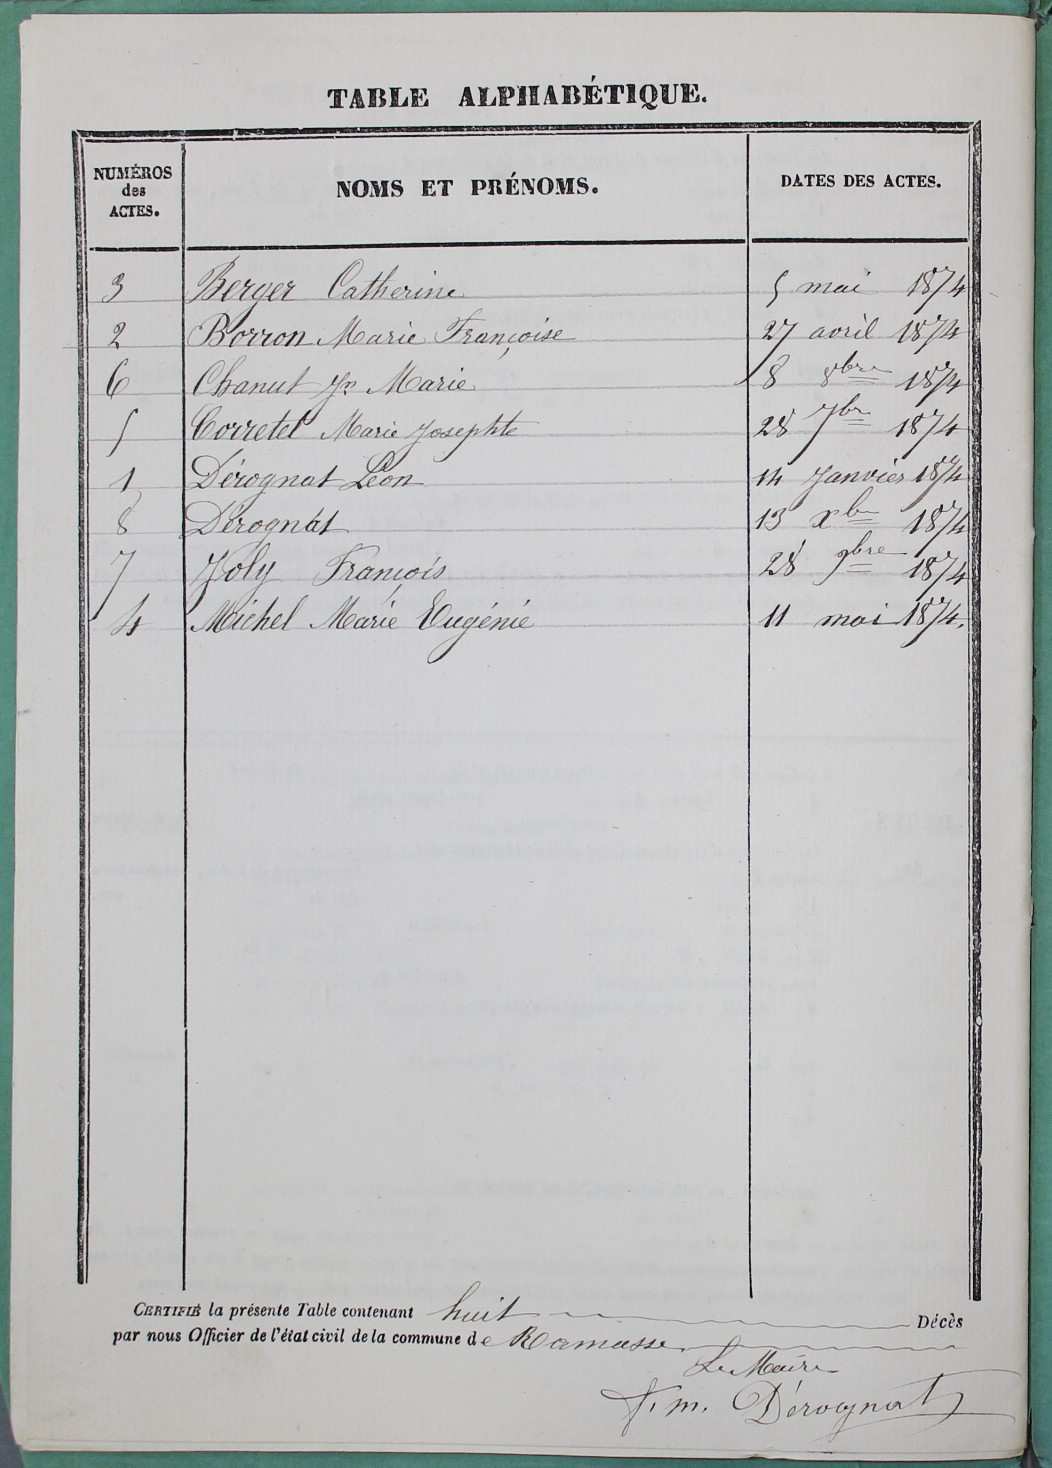 TABLE ALPHABÉTIQUE.
NUMÉROS des ACTES. NOMS ET PRÉNOMS. DATES DES ACTES.
3 Berger Catherine 5 mai 1874
2 Borron Marie Françoise 27 avril 1874
6 Chanut Jh Marie 8 8bre 1874
5 Corretel Marie Josephte 28 7br 1874
1 Dérognat Léon 14 Janvier 1874
8 Dérognat 13 xbre 1874
7 Joly François 28 9bre 1874
4 Michel Marie Eugénie 11 mai 1874.
CERTIFIÉ la présente Table contenant huit Décès
par nous Officier de l'état civil de la commune de Ramasse
Le Maire
f. m. Dérognat